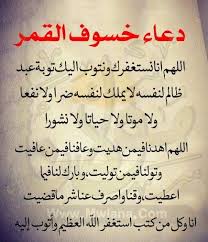 دعاء خسوف القمر
اللهم انا نستغفرك ونتوب اليك توبة عبد
ظالم لنفسه لا يملك لنفسه ضرا ولا نفعا
ولا موتا ولا حياتا ولا نشورا
اللهم اهدنا فيمن هديت وعافنا فيمن عافيت
وتولنا فيمن توليت، وبارك لنا فيما
اعطيت، وقنا واصرف عنا شر ماقضيت
انا وكل من كتب استغفر الله العظيم وأتوب إليه